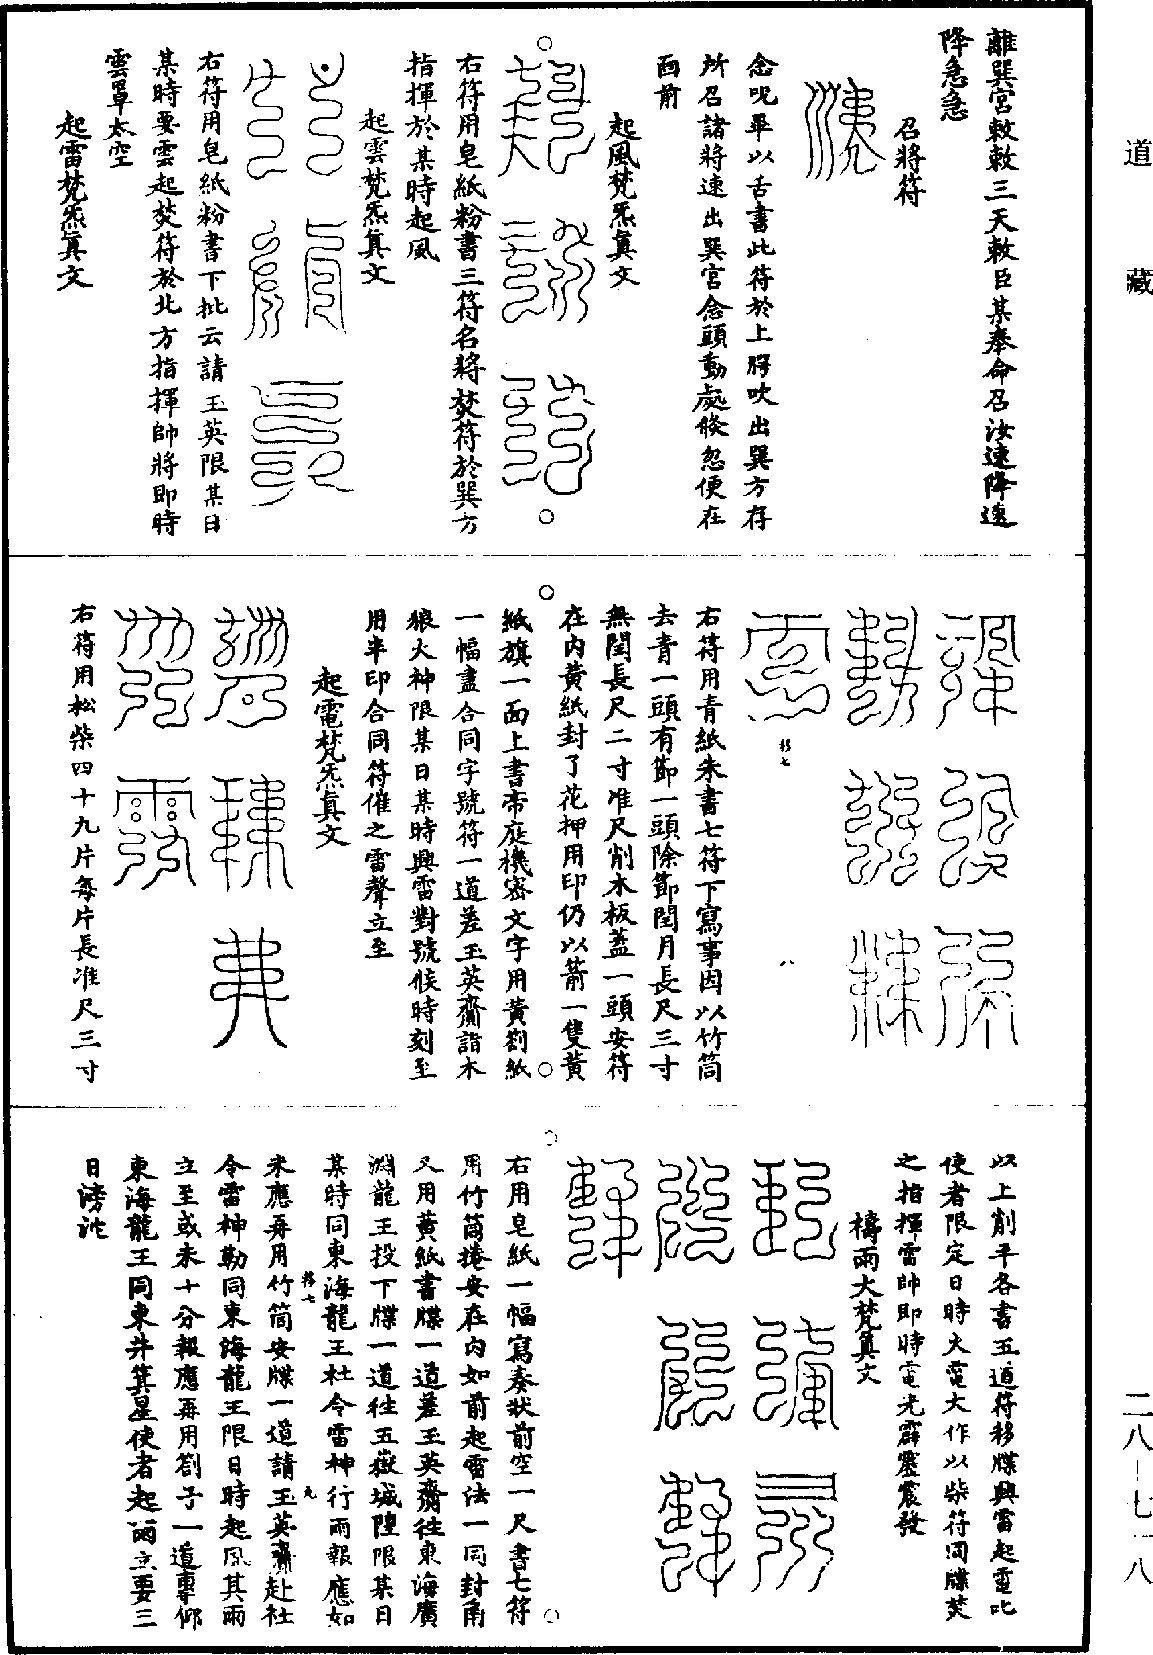 道藏
離巽宮敕敕三天敕臣某奉命召汝速降速
降急急
召將符
念呪畢以舌書此符於上腭吹出巽方存
所召諸將速出巽宮念頭動處倏忽便在
面前
起風梵炁眞文
右符用皂紙粉書三符名將焚符於巽方
指揮於某時起風
起雲梵炁眞文
右符用皂紙粉書下批云請玉英限某日
某時要雲起焚符於北方指揮帥將即時
雲罩太空
起雷梵炁眞文
右符用青紙朱書七符下寫事因以竹筒
去青一頭有節一頭除節閏月長尺三寸
無閏長尺二寸准尺削木板蓋一頭安符
在内黄紙封了花押用印仍以箭一隻黄
紙旗一面上書帝庭機密文字用黄劄紙
一幅畫合同字號符一道差玉英齎詣木
狼火神限某日某時興雷對號候時刻至
用半印合同符催之雷聲立至
起電梵炁眞文
右符用松柴四十九片每片長准尺三寸
移七
八
以上削平各書五道符移牒興雷起電叱
使者限定日時火電大作以柴符同牒焚
之指揮雷帥即時電光霹靂震發
禱雨大梵眞文
右用皂紙一幅寫奏狀前空一尺書七符
用竹筒捲安在内如前起雷法一同封角
又用黄紙書牒一道差玉英齎往東海廣
淵龍王投下牒一道往五嶽城隍限某日
某時同東海龍王社令雷神行雨報應如
未應再用竹筒安牒一道請玉英齎赴社
令雷神勒同東海龍王限日時起風其雨
立至或未十分報應再用劄子一道專仰
東海龍王同東井箕星使者起雨立要三
日滂沱
移七
九
二八—七一八